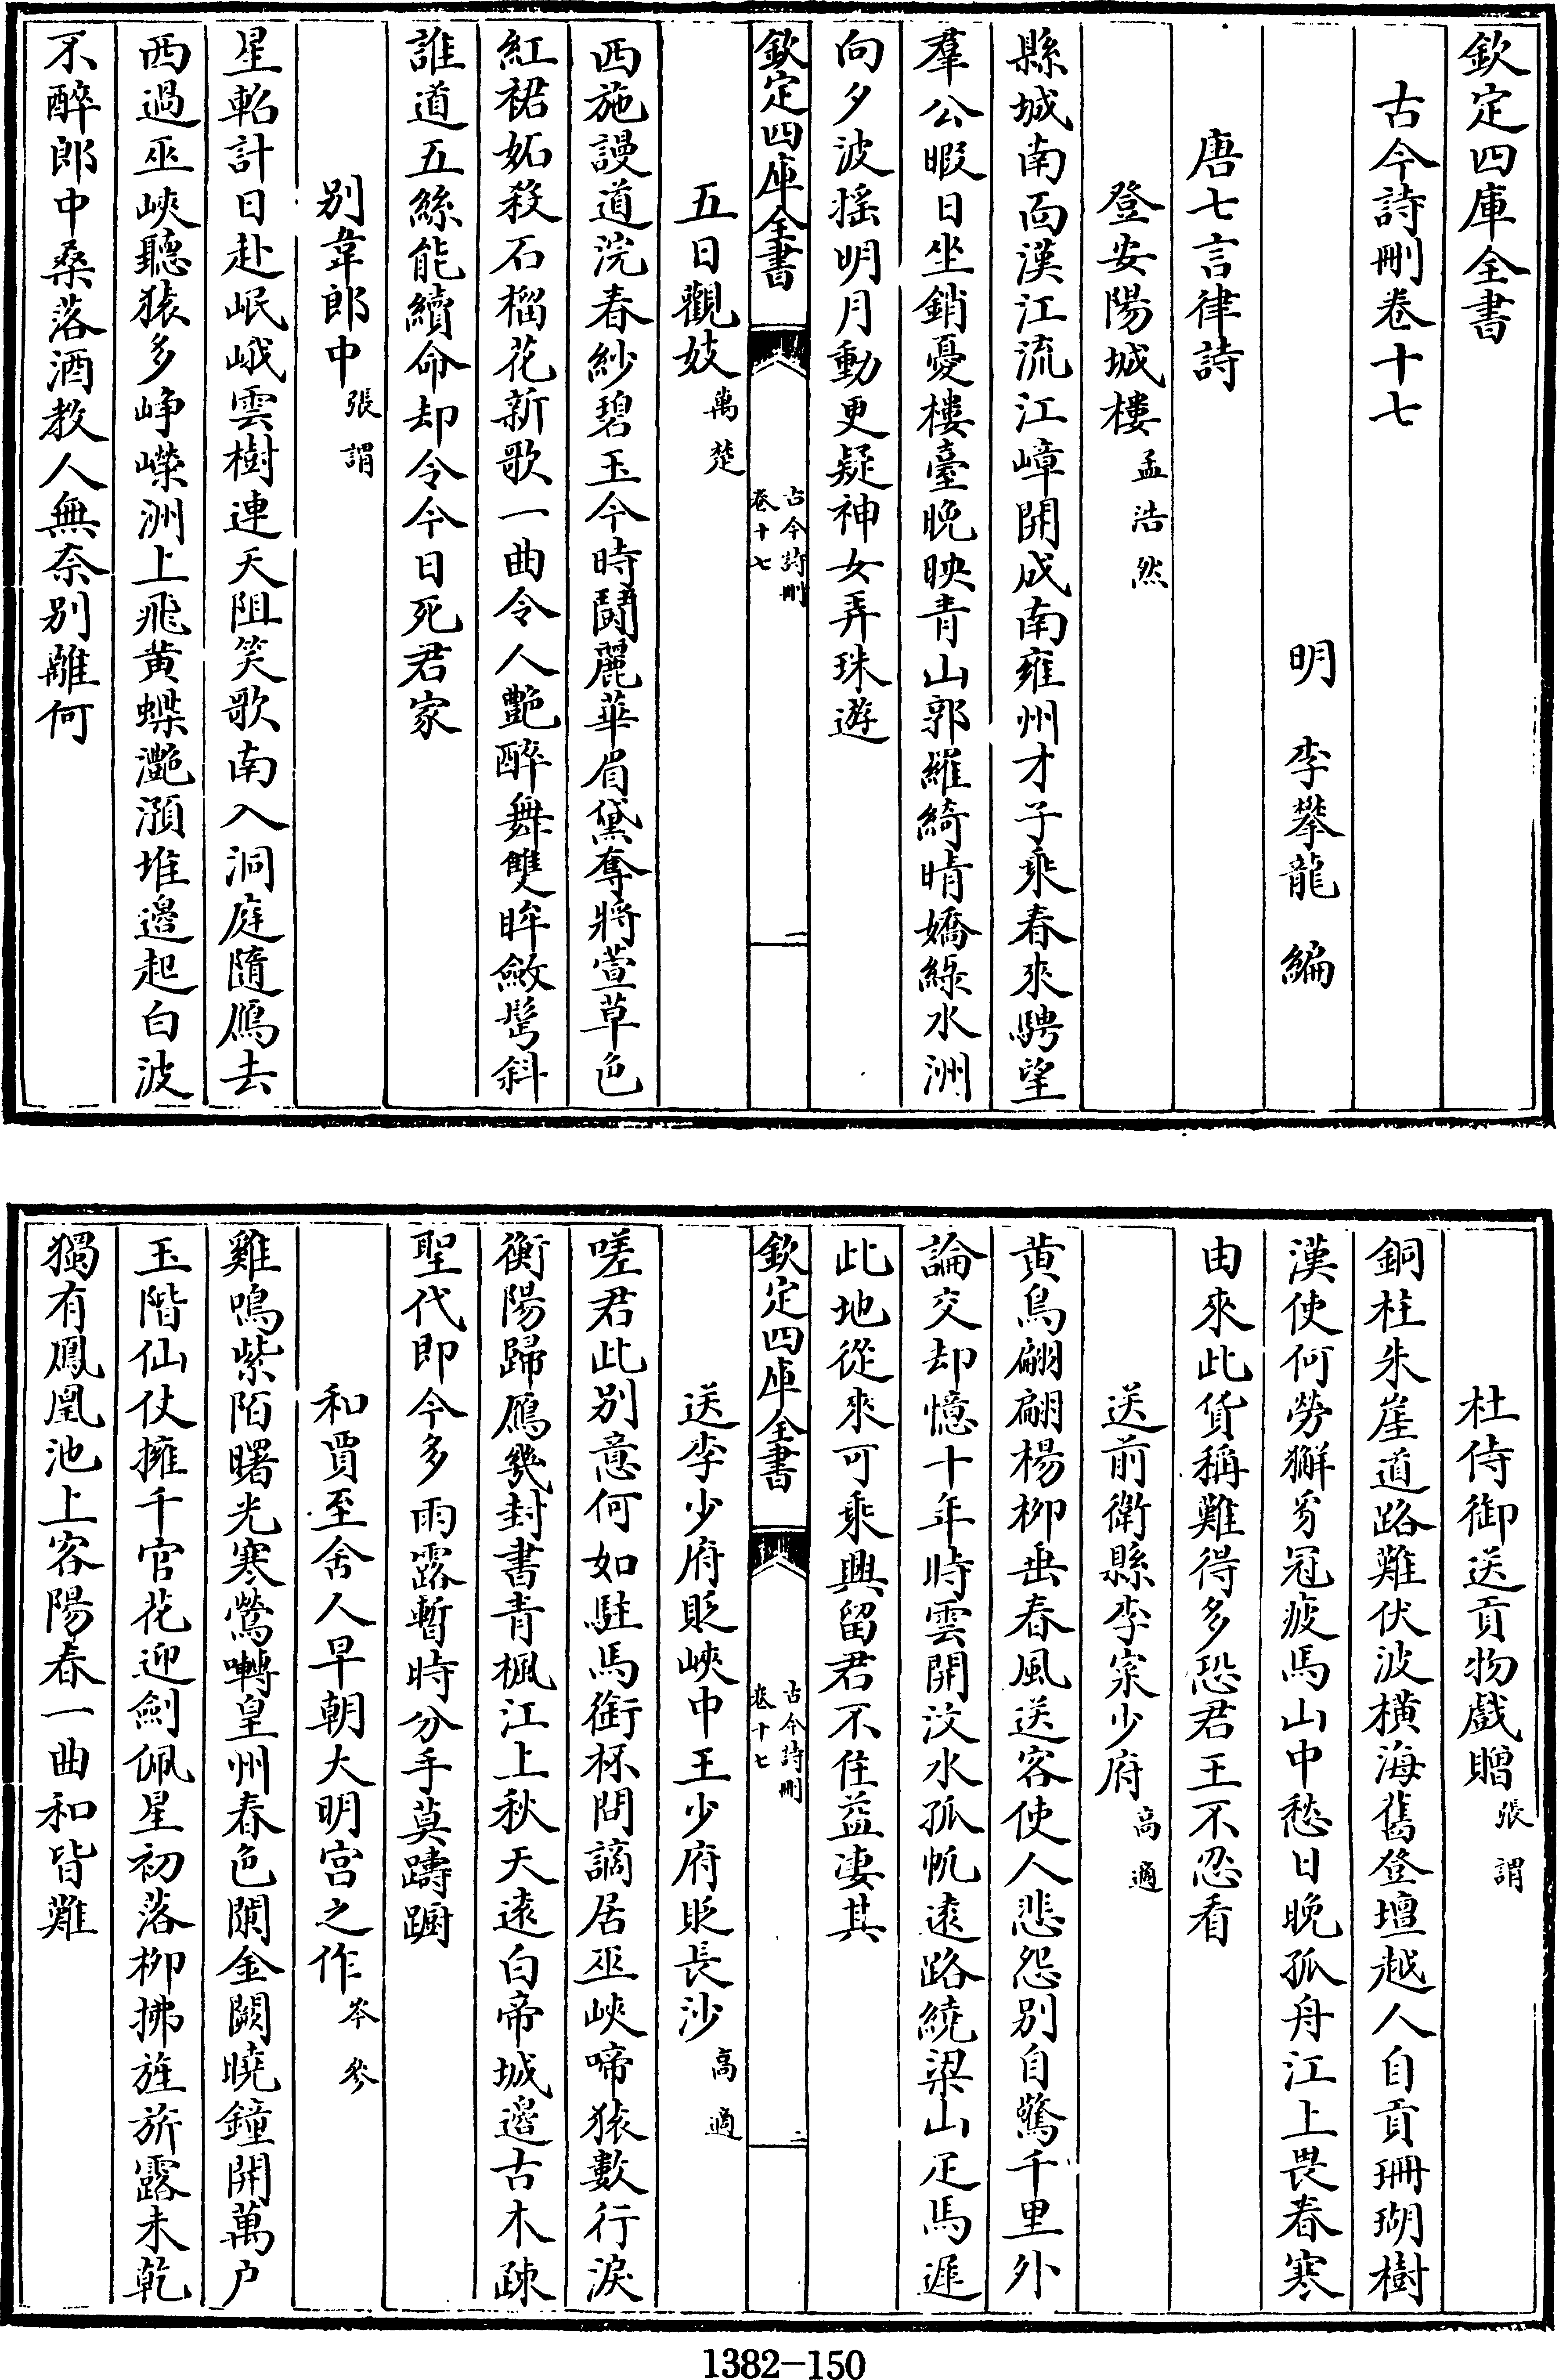 欽定四庫全書
古今詩刪卷十七
明 李攀龍 編
唐七言律詩
登安陽城樓 孟浩然
縣城南面漢江流江嶂開成南雍州才子乘春來騁望
羣公暇日坐銷憂樓臺晚映青山郭羅綺晴嬌綠水洲
向夕波搖明月動更疑神女弄珠遊
欽定四庫全書
古今詩刪
卷十七
一
五日觀妓 萬楚
西施謾道浣春紗碧玉今時鬬麗華眉黛奪將萱草色
紅裙妬殺石榴花新歌一曲令人艷醉舞雙眸斂髩斜
誰道五絲能續命却令今日死君家
別韋郎中 張謂
星軺計日赴岷峨雲樹連天阻笑歌南入洞庭隨鴈去
西過巫峽聽猿多崢嶸洲上飛黄蝶灔澦堆邊起白波
不醉郎中桑落酒教人無奈別離何
杜侍御送貢物戲贈 張謂
銅柱朱崖道路難伏波橫海舊登壇越人自貢珊瑚樹
漢使何勞獬豸冠疲馬山中愁日晚孤舟江上畏春寒
由來此貨稱難得多恐君王不忍看
送前衛縣李寀少府 高適
黄鳥翩翩楊柳垂春風送客使人悲怨別自驚千里外
論交却憶十年時雲開汶水孤帆遠路繞梁山疋馬遲
此地從來可乘興留君不住益凄其
欽定四庫全書
古今詩刪
卷十七
二
送李少府貶峽中王少府貶長沙 高適
嗟君此別意何如駐馬銜杯問謫居巫峽啼猿數行淚
衡陽歸鴈幾封書青楓江上秋天遠白帝城邊古木疎
聖代即今多雨露暫時分手莫躊蹰
和賈至舍人早朝大明宮之作 岑參
雞鳴紫陌曙光寒鶯囀皇州春色闌金闕曉鐘開萬户
玉階仙仗擁千官花迎劍佩星初落柳拂旌旂露未乾
獨有鳳凰池上客陽春一曲和皆難
1382-150